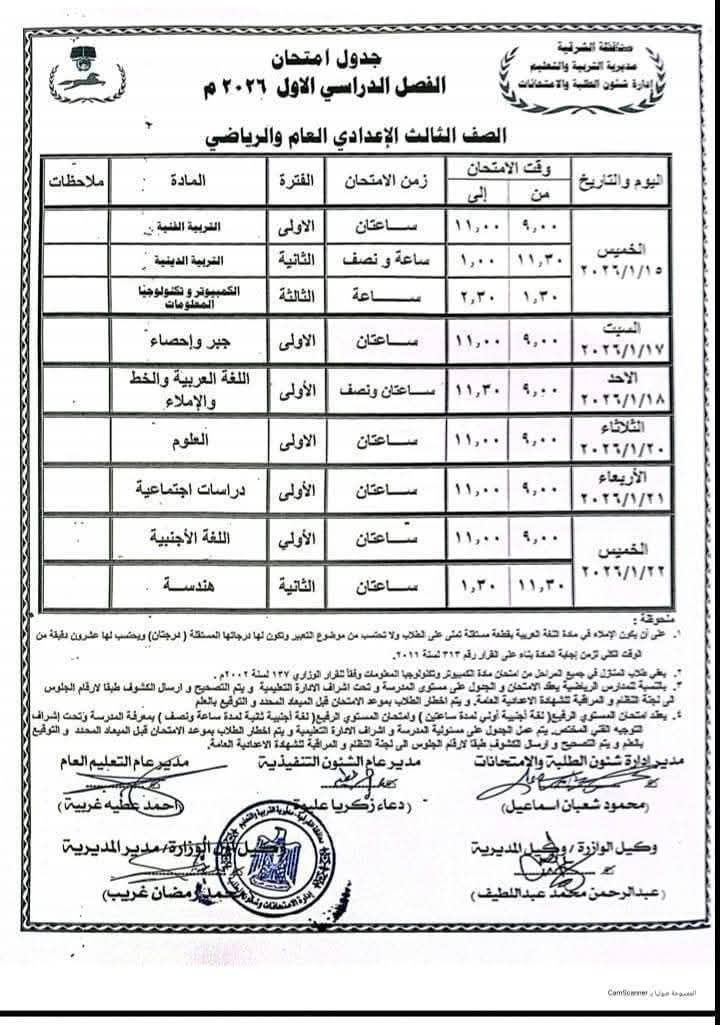 محافظة الشرقية
مديرية التربية والتعليم
إدارة شئون الطلبة والامتحانات
جدول امتحان
الفصل الدراسي الاول ٢٠٢٦ م
الصف الثالث الإعدادي العام والرياضي
اليوم والتاريخ وقت الامتحان زمن الامتحان الفترة المادة ملاحظات
من إلى
الخميس ٢٠٢٦/١/١٥
٩,٠٠ ١١,٠٠ ساعتان الاولى التربية الفنية
١١,٣٠ ١,٠٠ ساعة و نصف الثانية التربية الدينية
١,٣٠ ٢,٣٠ ساعة الثالثة الكمبيوتر و تكنولوجيا المعلومات
السبت ٢٠٢٦/١/١٧ ٩,٠٠ ١١,٠٠ ساعتان الاولى جبر وإحصاء
الاحد ٢٠٢٦/١/١٨ ٩,٠٠ ١١,٣٠ ساعتان ونصف الأولى اللغة العربية والخط والإملاء
الثلاثاء ٢٠٢٦/١/٢٠ ٩,٠٠ ١١,٠٠ ساعتان الاولى العلوم
الأربعاء ٢٠٢٦/١/٢١ ٩,٠٠ ١١,٠٠ ساعتان الأولى دراسات اجتماعية
الخميس ٢٠٢٦/١/٢٢
٩,٠٠ ١١,٠٠ ساعتان الأولي اللغة الأجنبية
١١,٣٠ ١,٣٠ ساعتان الثانية هندسة
ملحوظة :
١. على أن يكون الإملاء في مادة اللغة العربية بقطعة مستقلة تملى على الطلاب ولا تحتسب من موضوع التعبير وتكون لها درجاتها المستقلة ( درجتان) ويحتسب لها عشرون دقيقة من
الوقت الكلي لزمن إجابة المادة بناء على القرار رقم ٣١٣ لسنة ٢٠١١.
٢. يعفي طلاب المنازل في جميع المراحل من امتحان مادة الكمبيوتر وتكنولوجيا المعلومات وفقاً للقرار الوزاري ١٣٧ لسنة ٢٠٠٢م.
٣. بالنسبة للمدارس الرياضية يعقد الامتحان و الجدول على مستوي المدرسة و تحت اشراف الادارة التعليمية و يتم التصحيح و ارسال الكشوف طبقا لارقام الجلوس
الى لجنة النظام و المراقبة للشهادة الاعدادية العامة. و يتم اخطار الطلاب بموعد الامتحان قبل الميعاد المحدد و التوقيع بالعلم
٤. يعقد امتحان المستوي الرفيع( لغة أجنبية أولي لمدة ساعتين ) وامتحان المستوي الرفيع( لغة أجنبية ثانية لمدة ساعة ونصف ) بمعرفة المدرسة وتحت إشراف
التوجيه الفني المختص. يتم عمل الجدول على مسئولية المدرسة و اشراف الادارة التعليمية و يتم اخطار الطلاب بموعد الامتحان قبل الميعاد المحدد و التوقيع
بالعلم و يتم التصحيح و ارسال الكشوف طبقا لارقام الجلوس الى لجنة النظام و المراقبة للشهادة الاعدادية العامة.
مدير إدارة شئون الطلبة والامتحانات مدير عام الشئون التنفيذية مدير عام التعليم العام
(محمود شعبان اسماعيل) (دعاء زكريا عليوة) (احمد عطيه غريبة)
وكيل الوازرة / وكيل المديرية وكيل أول الوزارة / مدير المديرية
(عبدالرحمن محمد عبداللطيف) رمضان غريب)
الممسوحة ضوئيا بـ CamScanner